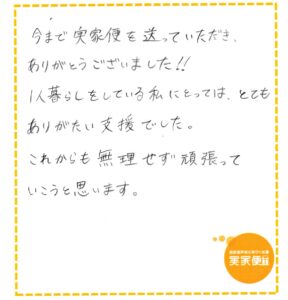 今まで実家便を送っていただき、
ありがとうございました!!
1人暮らしをしている私にとっては、とても
ありがたい支援でした。
これからも無理せず頑張って
いこうと思います。
実家便